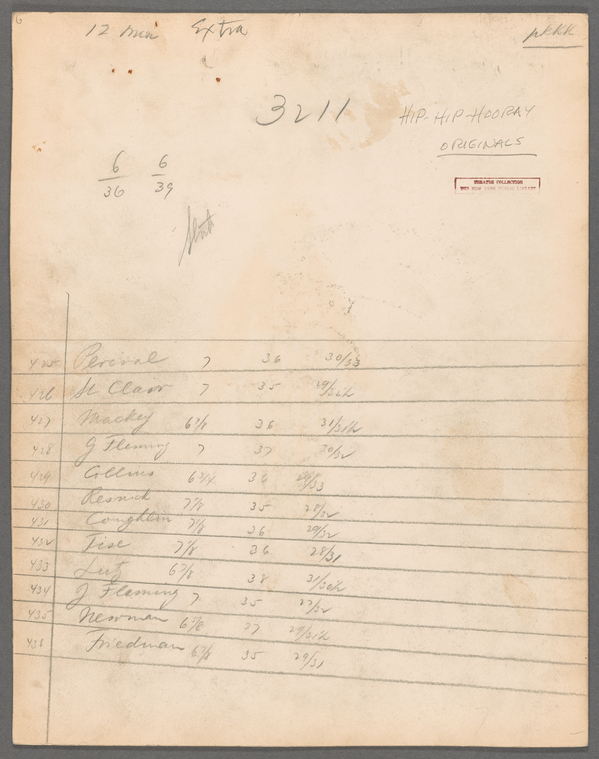 12 men Extra
3211
HIP-HIP-HOORAY
ORIGINALS
THEATRE COLLECTION
THE NEW YORK PUBLIC LIBRARY
6 6
36 39
425 Percival 7 36 30/33
426 St Clair 7 35
427 Mackey 36
428 G Fleming 7 37 30/32
429 Collins 36
430 Resnick 7 1/8 35 28/32
431 Coughlin 7 1/8 36 29/32
432 Tise 7 1/8 36 28/31
433 Lutz 6 7/8 38
434 J Fleming 7 35
435 Newman 6 7/8 37
436 Friedman 6 7/8 35 29/31